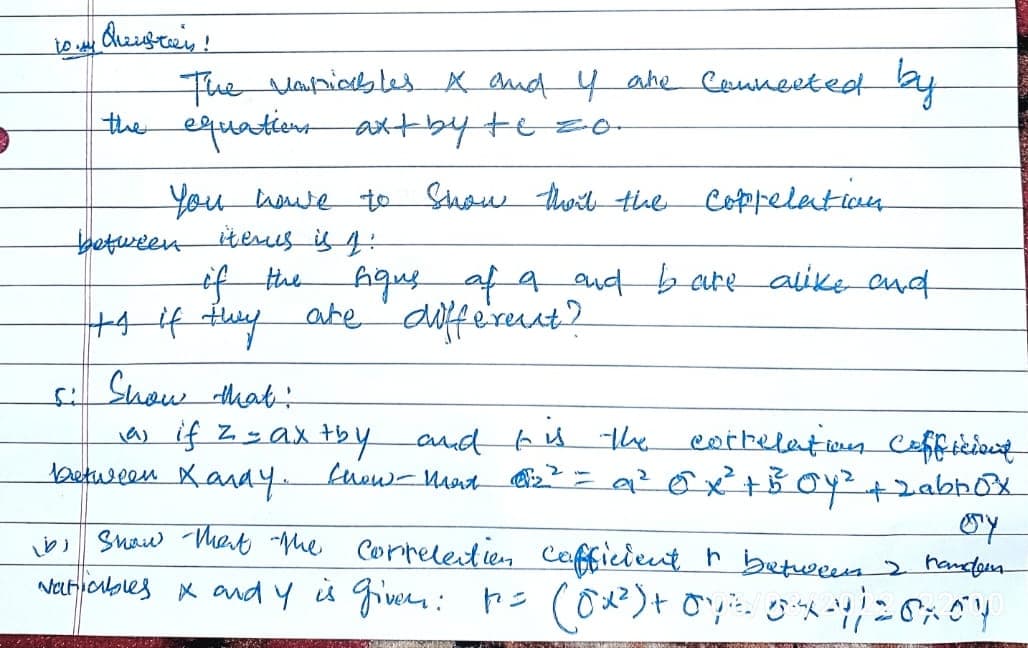 Question!
The variables X and Y are Connected by
the equation ax+by+c=0.
You have to Show that the Correlation
between items is 1:
if the signs of a and b are alike and
+1 if they are different?
5: Show that:
(a) if Z=ax+by and r is the correlation Coefficient
between X and Y. Show that σz² = a² σx² + b² σy² + 2abrσx
σy
(b) Show that the Correlation Cofficient r between 2 random
variables x and y is given: r = (σx²)+ σy